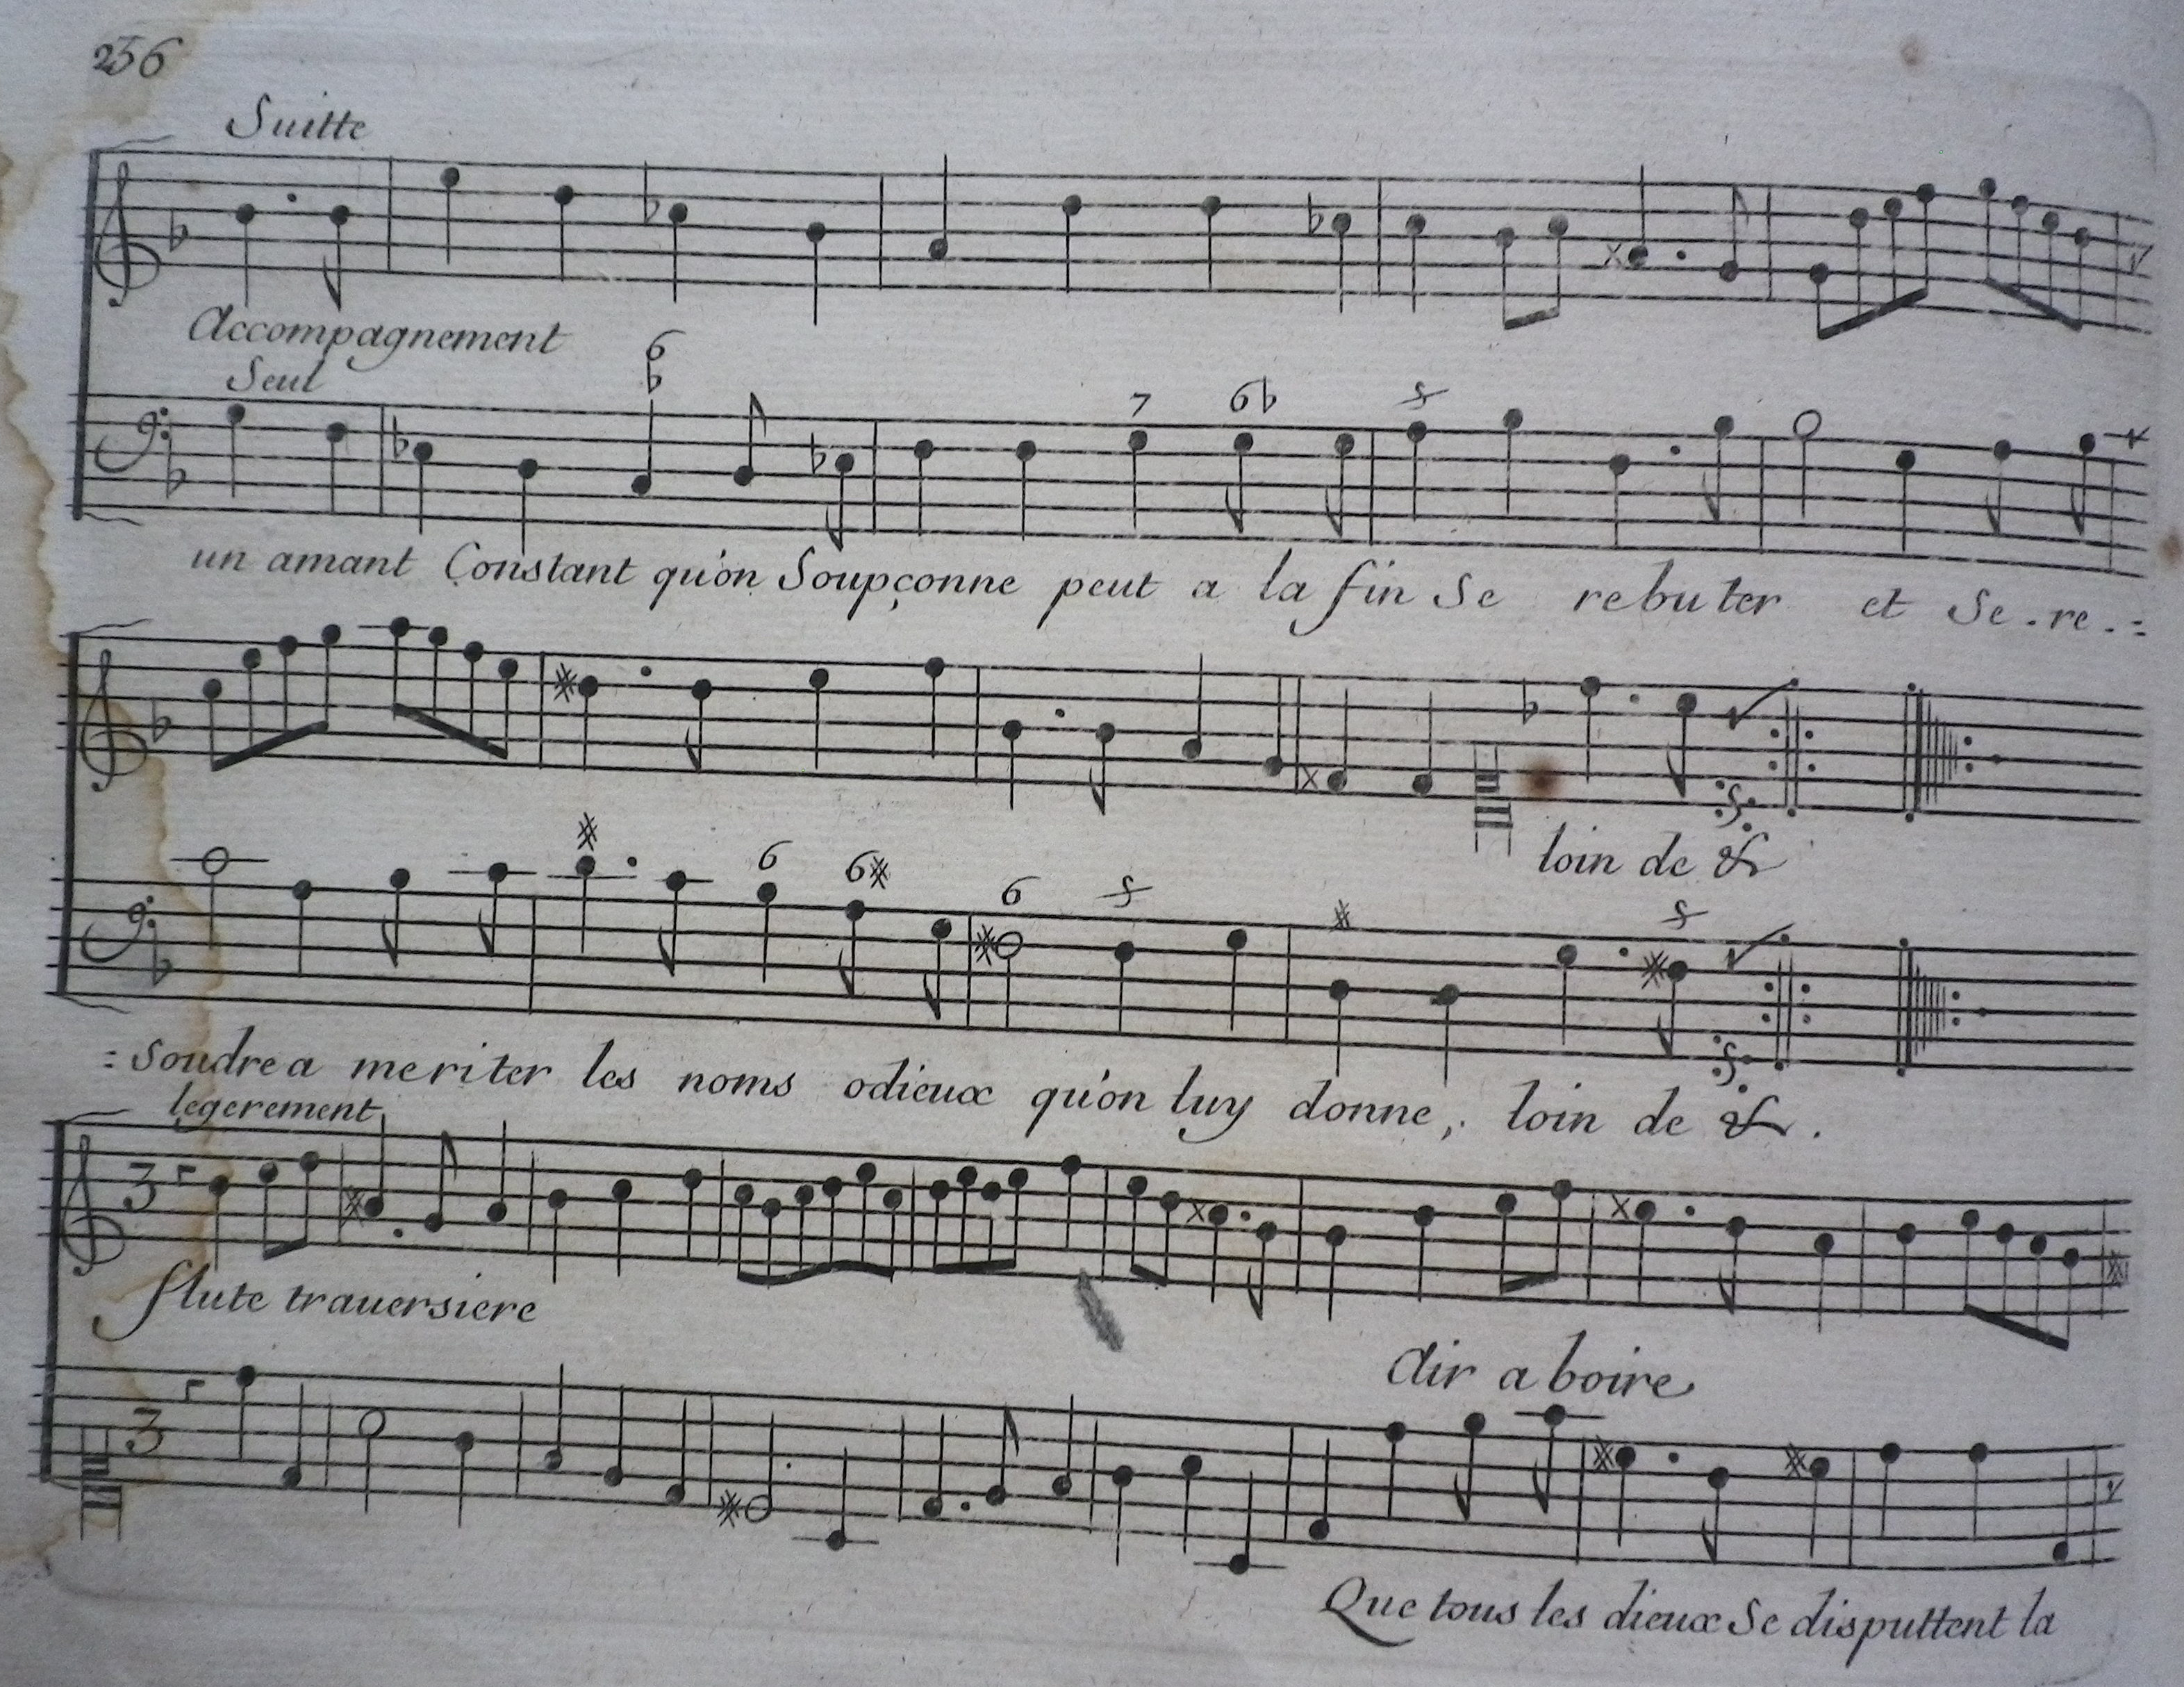 236
Suitte
Accompagnement
Seul
6
♭
7 6♭ 5
un amant Constant qu'on Soupçonne peut a la fin Se rebuter et Se.re.=
loin de &
# 6 6# 6 5 # 5
=Soudre a meriter les noms odieux qu'on luy donne,. loin de &.
legerement
3
flute trauersiere
Air a boire
3
Que tous les dieux Se disputtent la